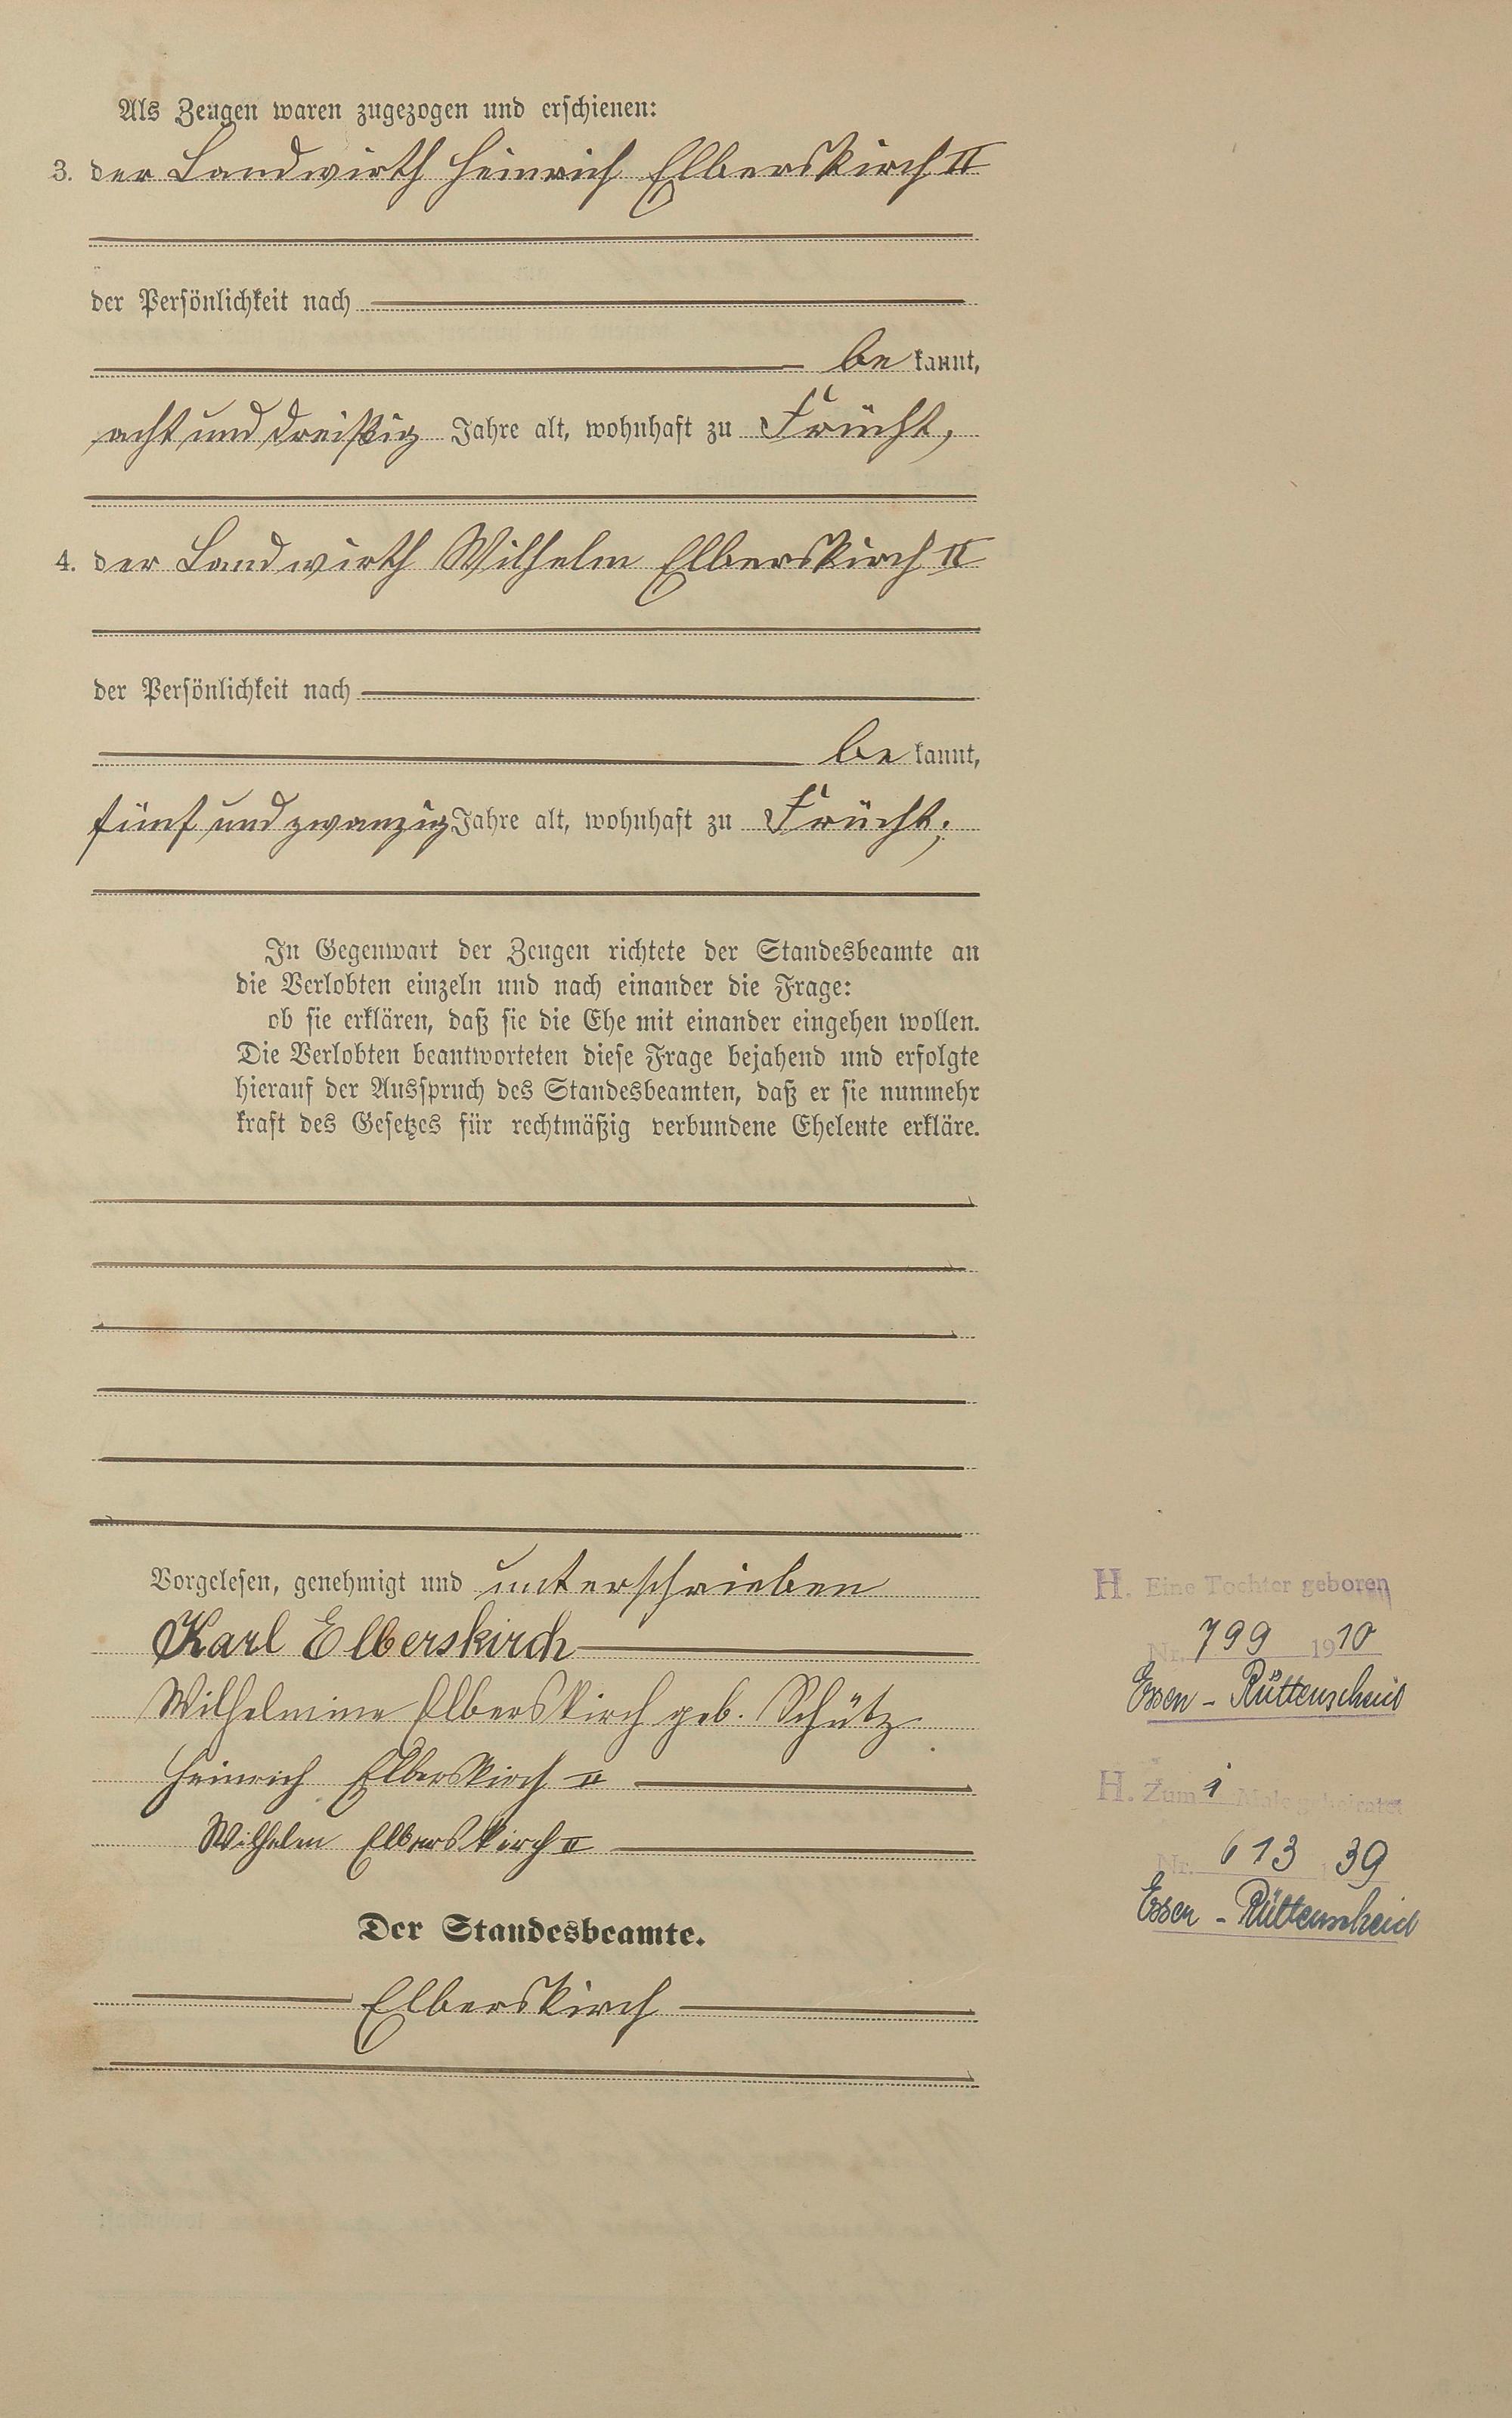 Als Zeugen waren zugezogen und erschienen:
3. der Landwirth Heinrich Elberskirch II
der Persönlichkeit nach
be kannt,
acht und dreißig Jahre alt, wohnhaft zu Frücht,
4. der Landwirth Wilhelm Elberskirch II
der Persönlichkeit nach
be kannt,
fünf und zwanzig Jahre alt, wohnhaft zu Frücht;
In Gegenwart der Zeugen richtete der Standesbeamte an
die Verlobten einzeln und nach einander die Frage:
ob sie erklären, daß sie die Ehe mit einander eingehen wollen.
Die Verlobten beantworteten diese Frage bejahend und erfolgte
hierauf der Ausspruch des Standesbeamten, daß er sie nunmehr
kraft des Gesetzes für rechtmäßig verbundene Eheleute erkläre.
Vorgelesen, genehmigt und unterschrieben
Karl Elberskirch
Wilhelmine Elberskirch geb. Schütz.
Heinrich Elberskirch II
Wilhelm Elberskirch II
Der Standesbeamte.
Elberskirch
H. Eine Tochter geboren
Nr. 799 1910
Essen - Rüttenscheid
H. Zum 1 Male geheiratet
Nr. 613 39
Essen - Rüttenscheid